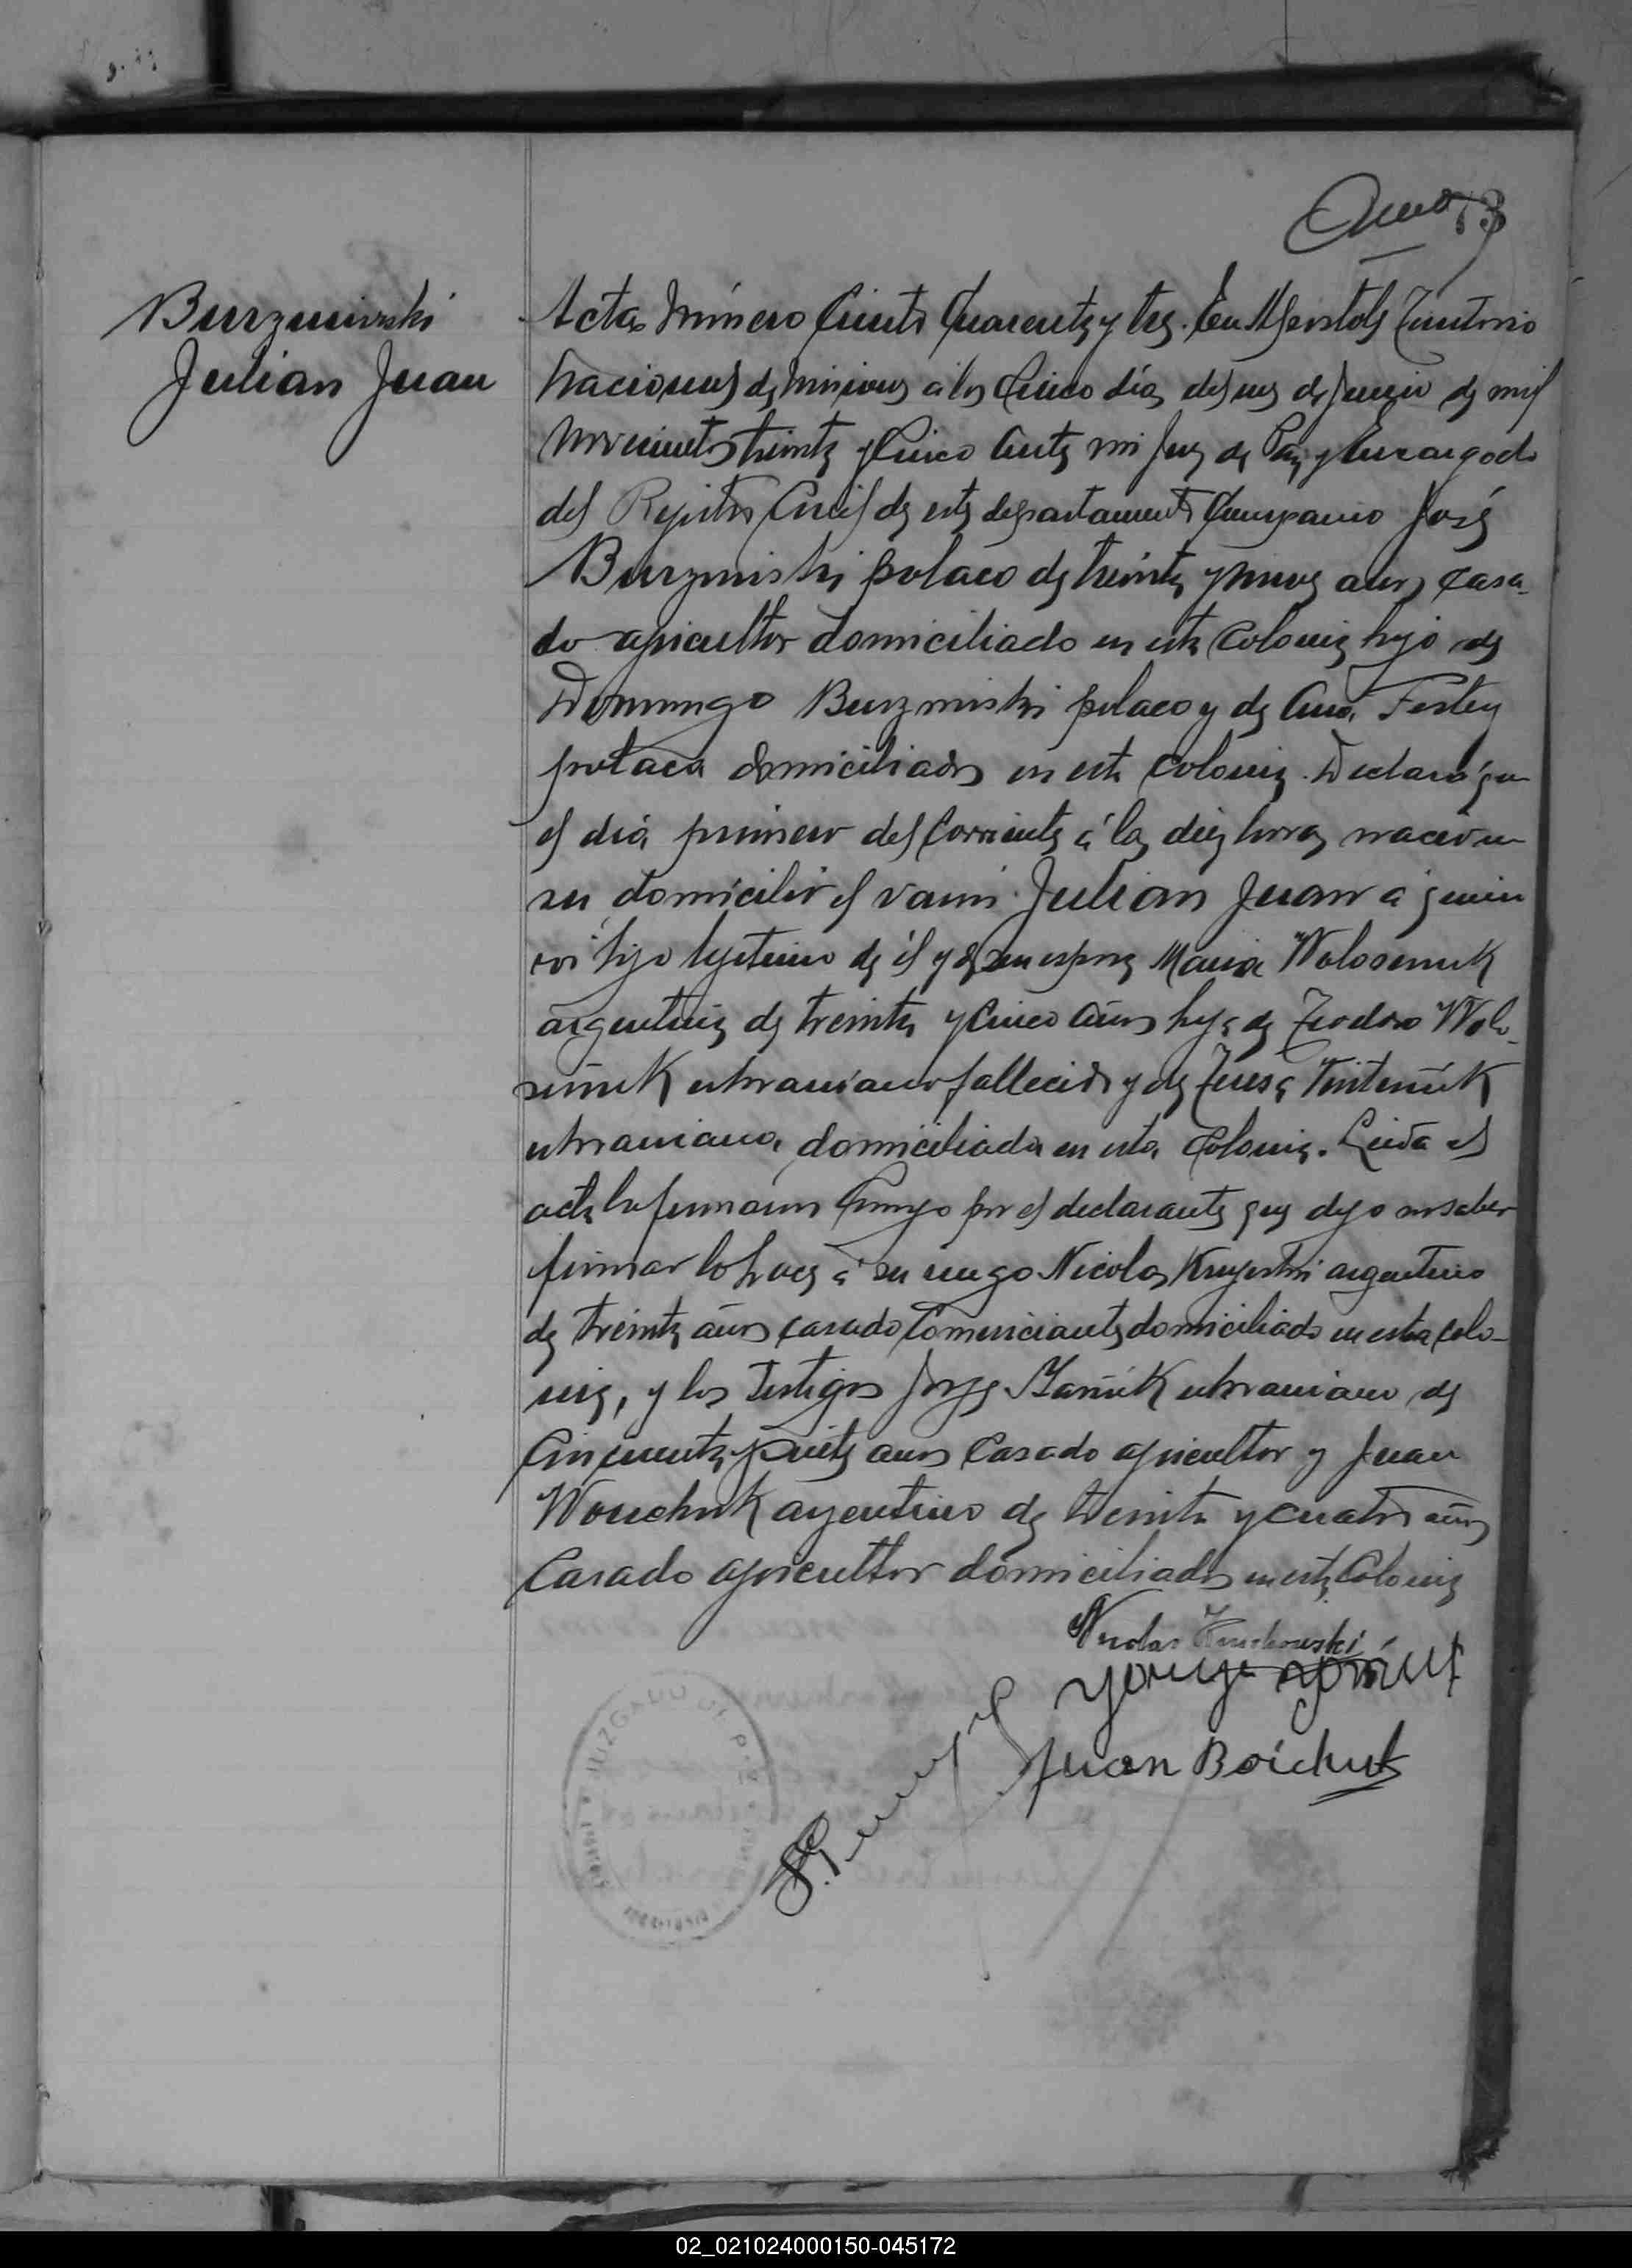 73
Burzmiuski
Julian Juan
Acta Número Ciento Cuarenta y tres. En Apóstoles Territorio
Nacional de Misiones a los Cinco días del mes de Junio de mil
novecientos treinta y Cinco ante mi Juez de Paz y Encargado
del Rejistro Civil de este departamento Compareció José
Burzmiski polaco de treinta y nueve años casa
do agricultor domiciliado en esta Colonia hijo de
Domingo Burzmiski polaco y de Ana
polaca domiciliados en esta colonia. Declaró que
el día primero del corriente á las diez horas nació en
su domicilio el varon Julian Juan a quien
hijo lejitimo de él y de su esposa Maria Wolosenuk
argentina de treinta y Cinco años hija de Teodoro Wolo-
senuk ukraniano fallecido y de Teresa
ukraniana domiciliada en esta Colonia. Leida el
acta la firmaron Conmigo por el declarante que dijo no saber
firmar lo hace á su ruego Nicolas argentino
de treinta años casado Comerciante domiciliado en esta colo-
nia, y los Testigos Jorge ukraniano de
Cincuenta y siete años Casado agricultor y Juan
argentino de treinta y cuatro años
Casado agricultor domiciliados en esta Colonia
Nicolas
Juan Boichuk
JUZGADO DE PAZ
02_021024000150-045172